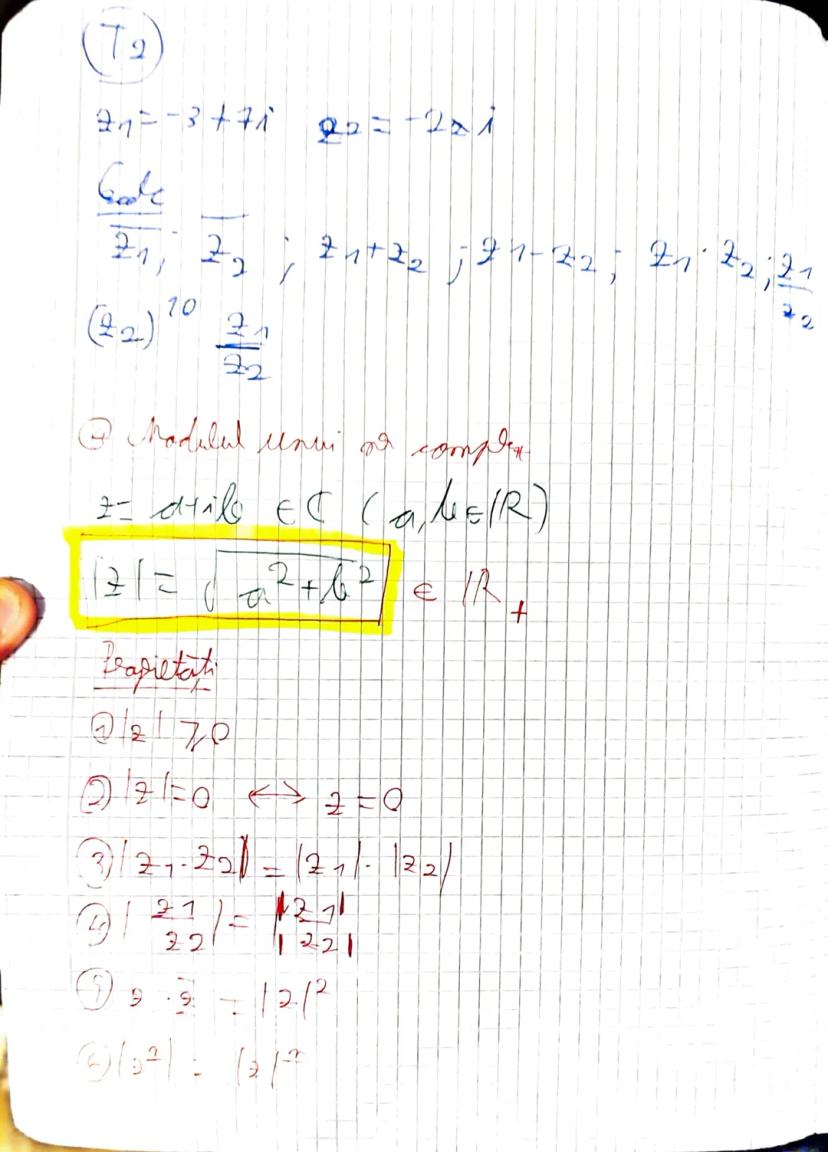 T2
z1 = -3 + 7i z2 = -2 i
Calc
z̅1; z̅2; z1+z2; z1-z2; z1·z2; z1/z2
(z2)^10 z1/z2
Modulul unui nr complex
z = a+ib ∈ ℂ (a, b ∈ ℝ)
|z| = √(a²+b²) ∈ ℝ+
Proprietăți
① |z| ≥ 0
② |z| = 0 ↔ z = 0
③ |z1·z2| = |z1|·|z2|
④ |z1/z2| = |z1|/|z2|
⑤ z·z̅ = |z|²
⑥ |zⁿ| = |z|ⁿ